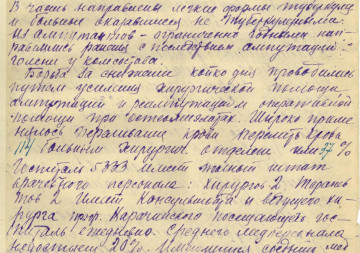 В часть направлены легкие формы туберкулеза
и больные оказавшиеся не туберкулезными.
Из ампутантов - ограниченно годными нап-
равлялись раненые с последствиями ампутаций
голени у комсостава.
Борьба за снижение койко дня проводилась
путем усиления хирургической помощи
ампутацией и реампутацией оперативной
помощи при остеомиелитах. Широко приме
нялось переливание крови перелито крови
114 больным хирургич. отделения или 37%
Госпиталь 5333 имеет полный штат
врачебного персонала: хирургов 2 терапев
тов 2 имеет консультанта и ведущего хи-
рурга проф. Карачевского посещающего гос-
питаль ежедневно. Среднего медперсонала
недостает 20%. Имеющийся средний мед